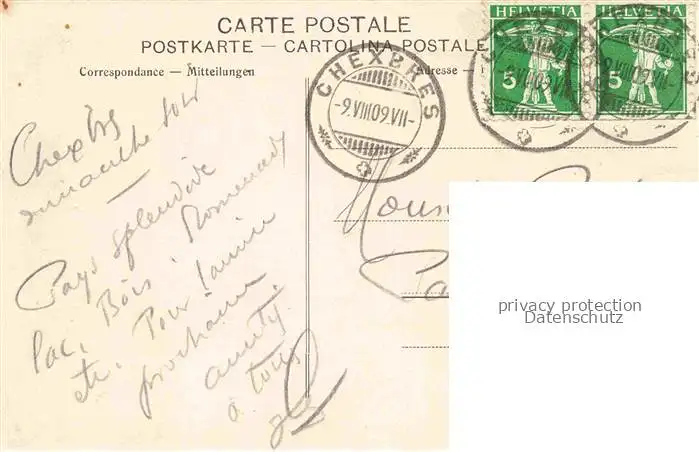 CARTE POSTALE
POSTKARTE — CARTOLINA POSTALE
Correspondance — Mitteilungen
Adresse
HELVETIA
5
HELVETIA
5
CHEXBRES
-9.VIII09.VII-
Chexbres
dimanche soir
Pays splendide
lac, Bois, Promenades
etc. Pour l'année
prochaine
amitiés
à tous
privacy protection
Datenschutz